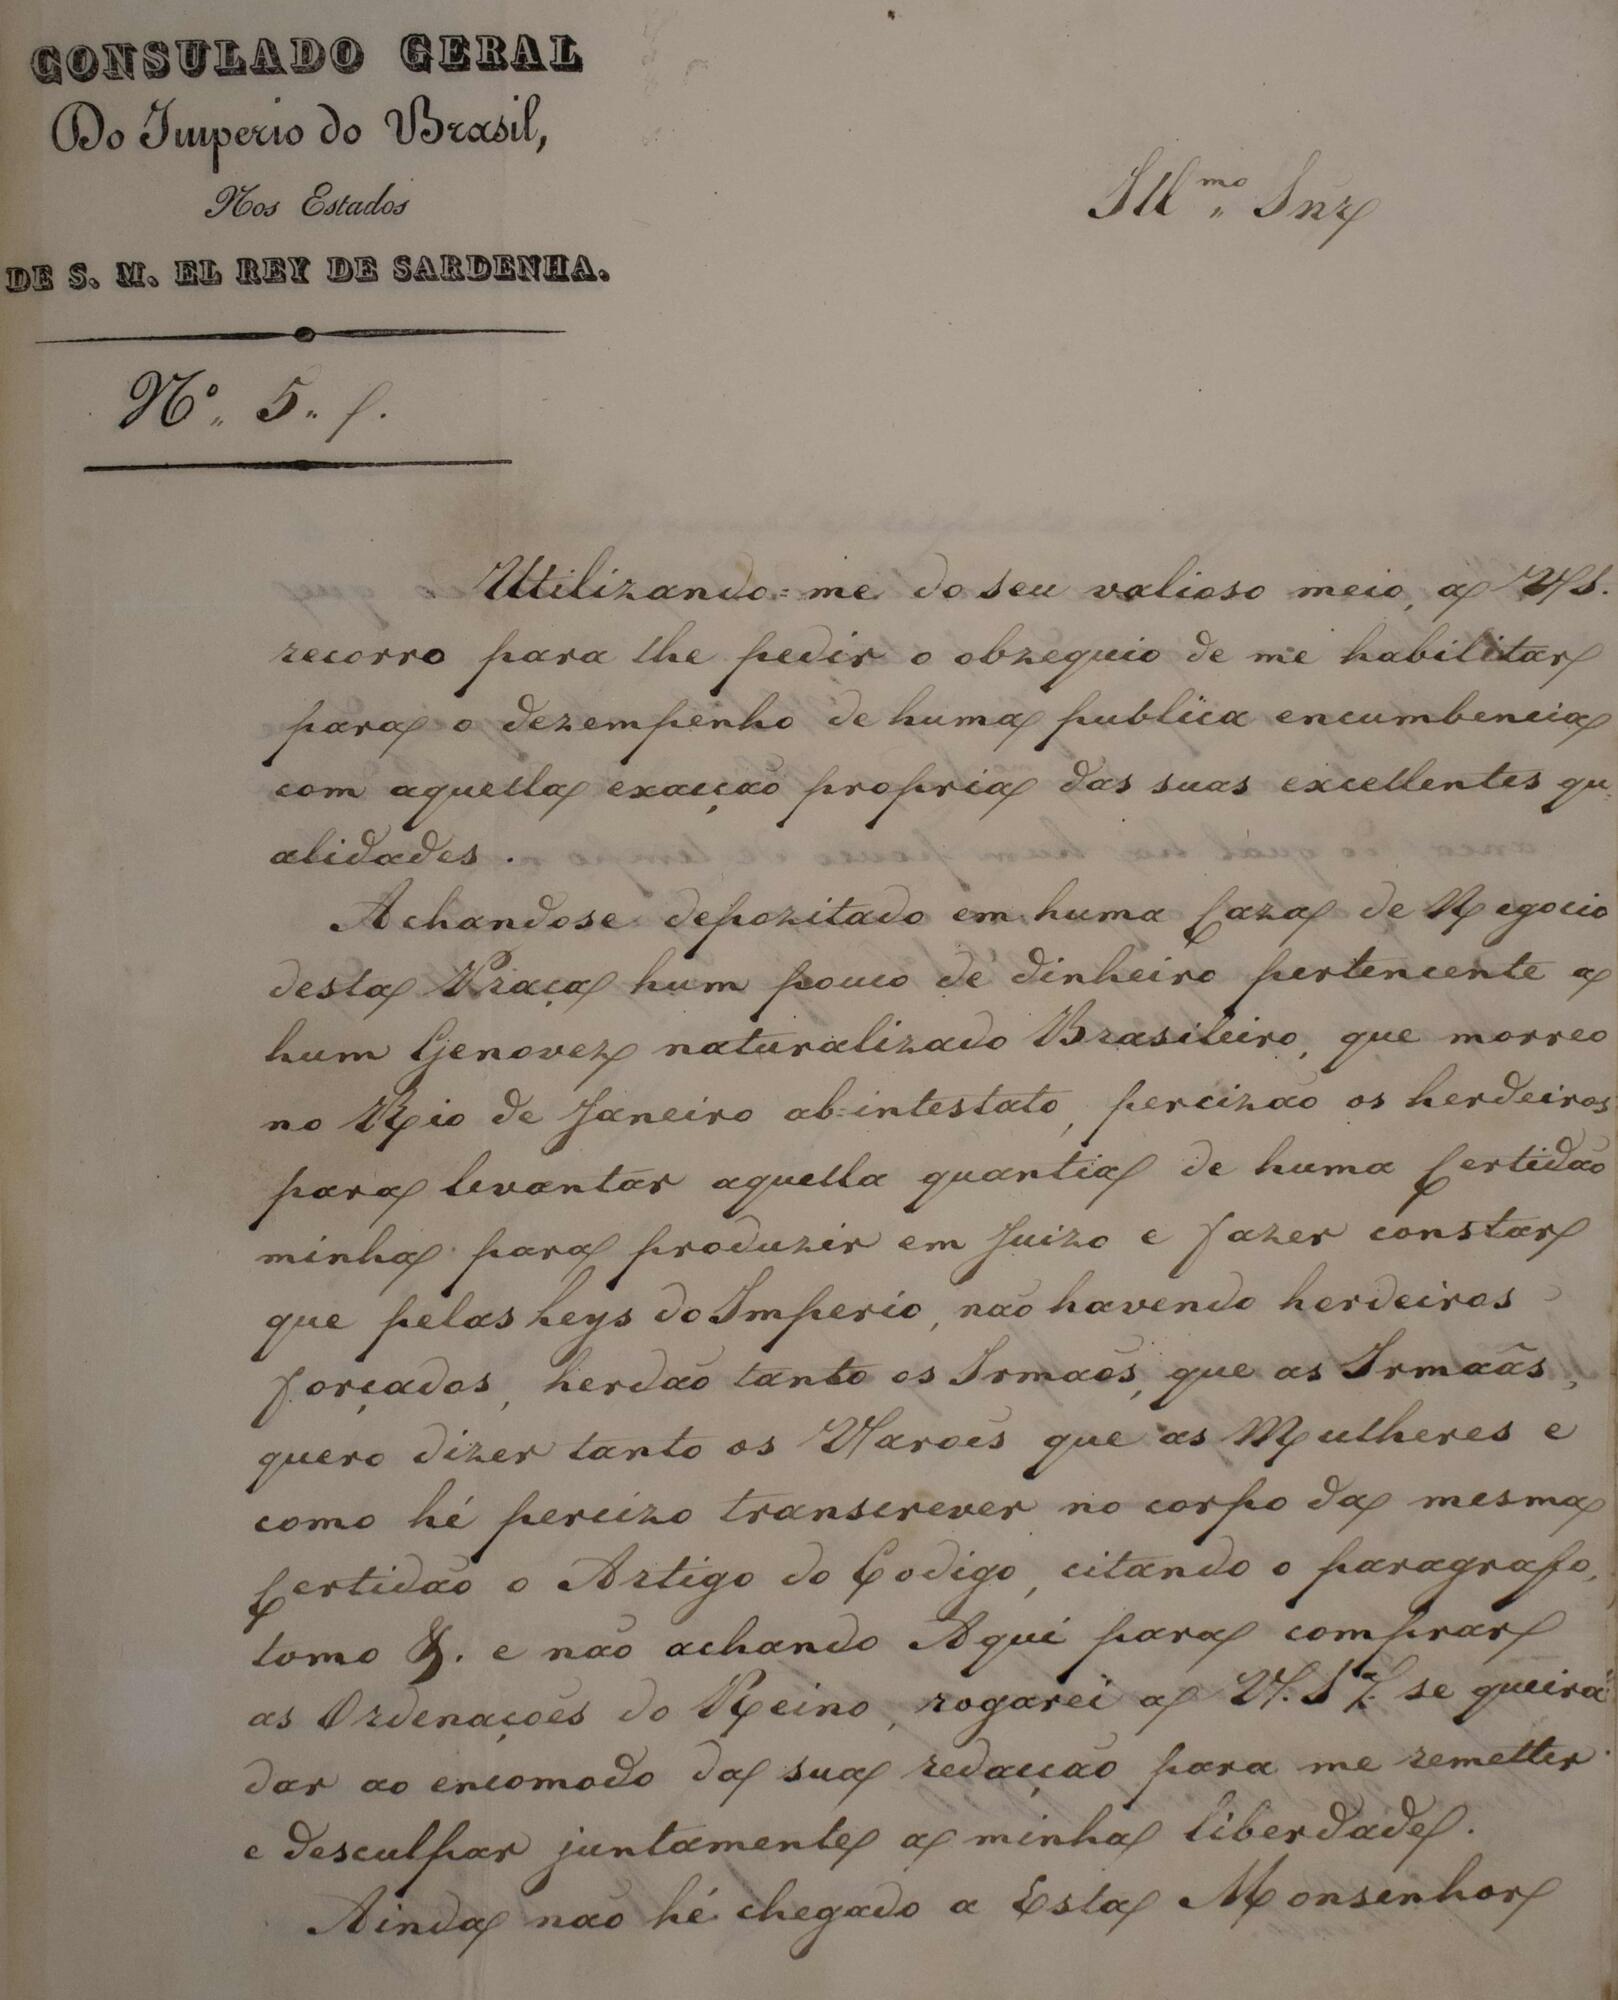 CONSULADO GERAL
Do Imperio do Brasil,
Nos Estados
DE S. M. EL REY DE SARDENHA.
Nº. 5.
Illmo. Snr
Utilizando=me do seu valioso meio, a VS.
recorro para lhe pedir o obzequio de me habilitar
para o dezempenho de huma publica encumbencia
com aquella exacção propria das suas excellentes qu=
alidades.
Achandose depozitado em huma Caza de Negocio
desta Praça hum pouco de dinheiro pertencente a
hum Genovez naturalizado Brasileiro, que morreo
no Rio de Janeiro ab=intestato, percizão os herdeiros
para levantar aquella quantia de huma Certidão
minha para produzir em Juizo e fazer constar
que pelas Leys do Imperio, não havendo herdeiros
forçados, herdão tanto os Irmaõs, que as Irmaãs,
quero dizer tanto os Varoẽs que as Mulheres e
como hé percizo transcrever no corpo da mesma
Certidão o Artigo do Codigo, citando o paragrafo,
tomo &. e não achando Aqui para comprar
as Ordenaçoẽs do Reino, rogarei a V. Sa. se queira
dar ao encomodo da sua redacção para me remetter
e desculpar juntamente a minha liberdade.
Ainda não hé chegado a Esta Monsenhor